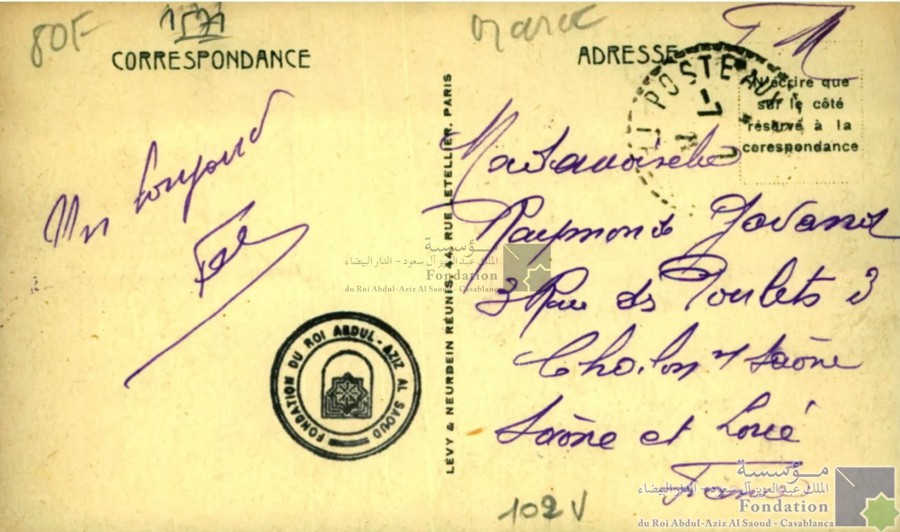 80F
1571
Maroc
CORRESPONDANCE
ADRESSE
F M
POSTE AUX
N'écrire que
sur le côté
réservé à la
corespondance
Un bonjour
LÉVY & NEURDEIN RÉUNIS, 44, RUE LETELLIER, PARIS
Mademoiselle
Raymonde
3 Rue des Poulets 3
Chalon s/ Saône
Saône et Loire
France
FONDATION DU ROI ABDUL-AZIZ AL SAOUD
مؤسسة
الملك عبد العزيز آل سعود - الدار البيضاء
Fondation
du Roi Abdul-Aziz Al Saoud - Casablanca
102 V
مؤسسة
الملك عبد العزيز آل سعود - الدار البيضاء
Fondation
du Roi Abdul-Aziz Al Saoud - Casablanca